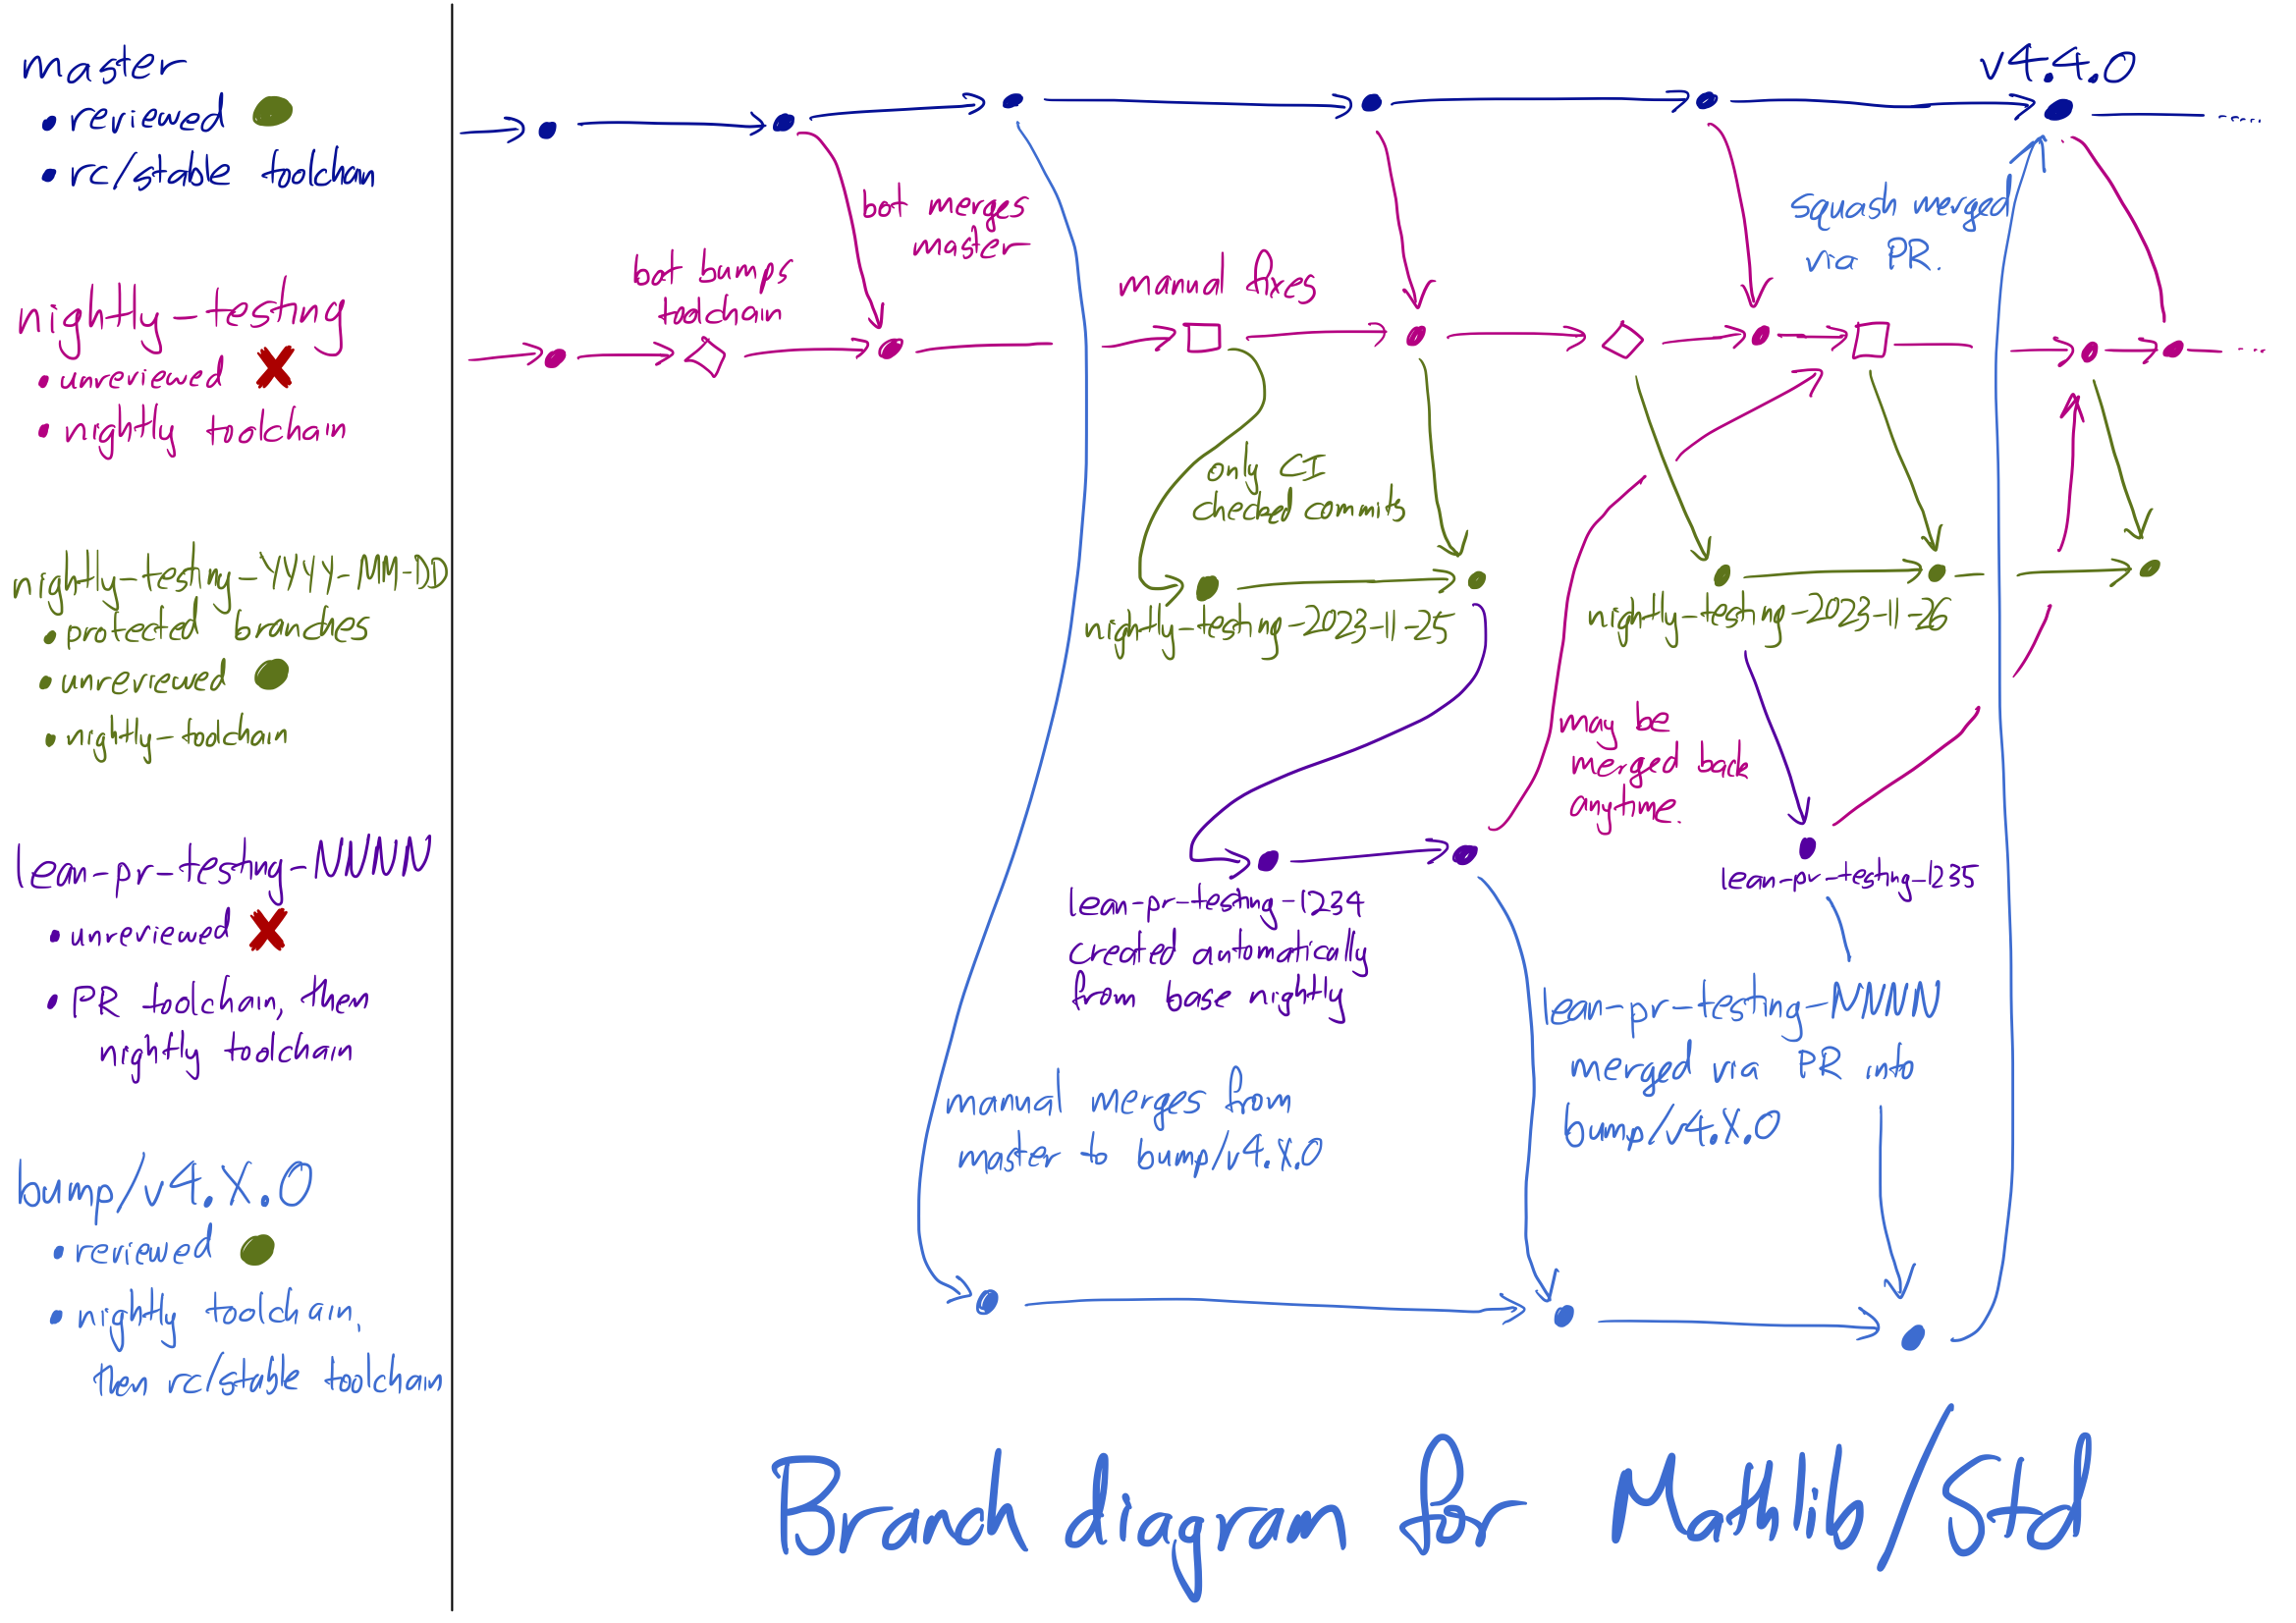 master
• reviewed
• rc/stable toolchain
nightly-testing
• unreviewed
• nightly toolchain
nightly-testing-YYYY-MM-DD
• protected branches
• unreviewed
• nightly-toolchain
lean-pr-testing-NNNN
• unreviewed
• PR toolchain, then
nightly toolchain
bump/v4.X.0
• reviewed
• nightly toolchain,
then rc/stable toolchain
v4.4.0
bot merges
master
squash merged
via PR.
bot bumps
toolchain
manual fixes
only CI
checked commits
nightly-testing-2023-11-25
nightly-testing-2023-11-26
may be
merged back
anytime.
lean-pr-testing-1234
created automatically
from base nightly
lean-pr-testing-1235
lean-pr-testing-NNNN
merged via PR into
bump/v4.X.0
manual merges from
master to bump/v4.X.0
Branch diagram for Mathlib/Std